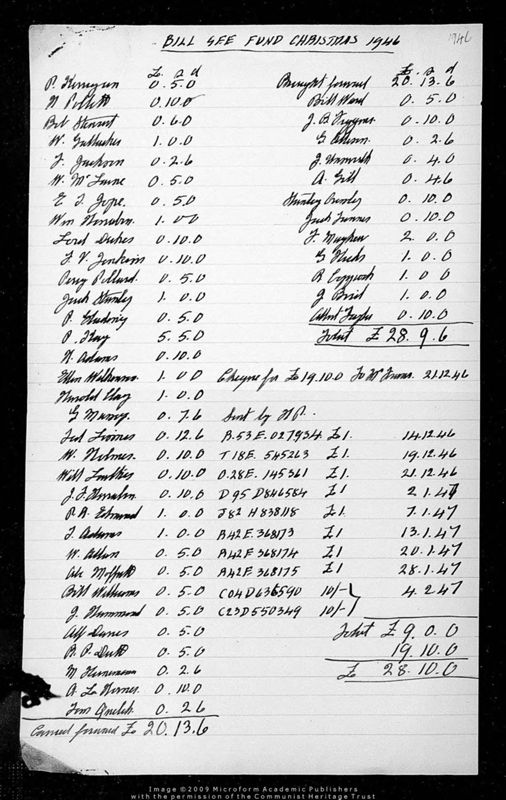 1946
BILL GEE FUND CHRISTMAS 1946
£. s d
P. Kerrigan 0. 5. 0
H Pollitt 0. 10. 0
Bob Stewart 0. 6. 0
W. Gallacher 1. 0. 0
J. Jackson 0. 2. 6
W. McLaine 0. 5. 0
E J. Pope. 0. 5. 0
Wm 1. 0 0
Ford 0. 10. 0
F V. Jenkins 0. 10. 0
Percy Pollard. 0. 5. 0
Jack Stanley 1. 0. 0
P. 0. 5. 0
P. Hay 5. 5. 0
H. Adams 0. 10. 0
Ellen Wilkinson. 1. 0 0
Harold Clay 1. 0. 0
G Maney. 0. 7. 6
Ted 0. 12. 6
W. Holmes 0. 10. 0
Will 0. 10. 0
J. F. 0. 10. 0
R. A. Edmund 1. 0. 0
J. Adams 1. 0. 0
W. Allen 0. 5. 0
Abe Moffatt 0. 5. 0
Bill Williams 0. 5. 0
J. Hammond 0. 5. 0
Alf 0. 5. 0
R. P. Dutt 0. 5. 0
M 0. 2. 6
A. 0. 10. 0
Tom Quelch. 0. 2 6
Carried forward £ 20. 13. 6
£. s d
Brought forward 20. 13. 6
Bill Ward 0. 5. 0
J. B. 0. 10. 0
G Allison 0. 2. 6
J. 0. 4. 0
A. Gill 0. 4. 6
Stanley 0. 10. 0
Jack 0. 10. 0
F. Mayhew 2. 0. 0
G Hicks 1. 0. 0
R Coppock 1. 0 0
J Bird 1. 0. 0
Albert 0. 10. 0
Total £ 28. 9. 6
Cheque for £ 19. 10. 0 To Mr 21.12.46
Sent by H P.
A. 53 E. 027934 £1. 14.12.46
T 18E. 545263 £1 19.12.46
0.28E. 145361 £1. 21.12.46
D 95 D846584 £1 2.1.47
J82 H 838118 £1. 7.1.47
A42E. 368173 £1 13.1.47
A42E 368174 £1 20.1.47
A42E 368175 £1 28.1.47
C04D636590 10/- 4.2.47
C23D550349 10/-
Total £ 9. 0. 0
19. 10. 0
£ 28. 10. 0
Image ©2009 Microform Academic Publishers
with the permission of the Communist Heritage Trust